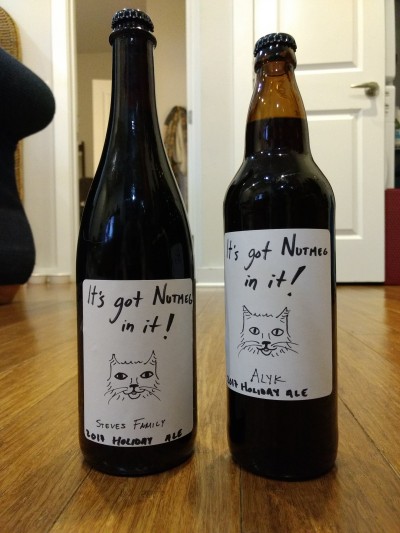 It's got Nutmeg
in it!
Steves Family
2017 Holiday Ale
It's got Nutmeg
in it!
Alyk
2017 Holiday Ale